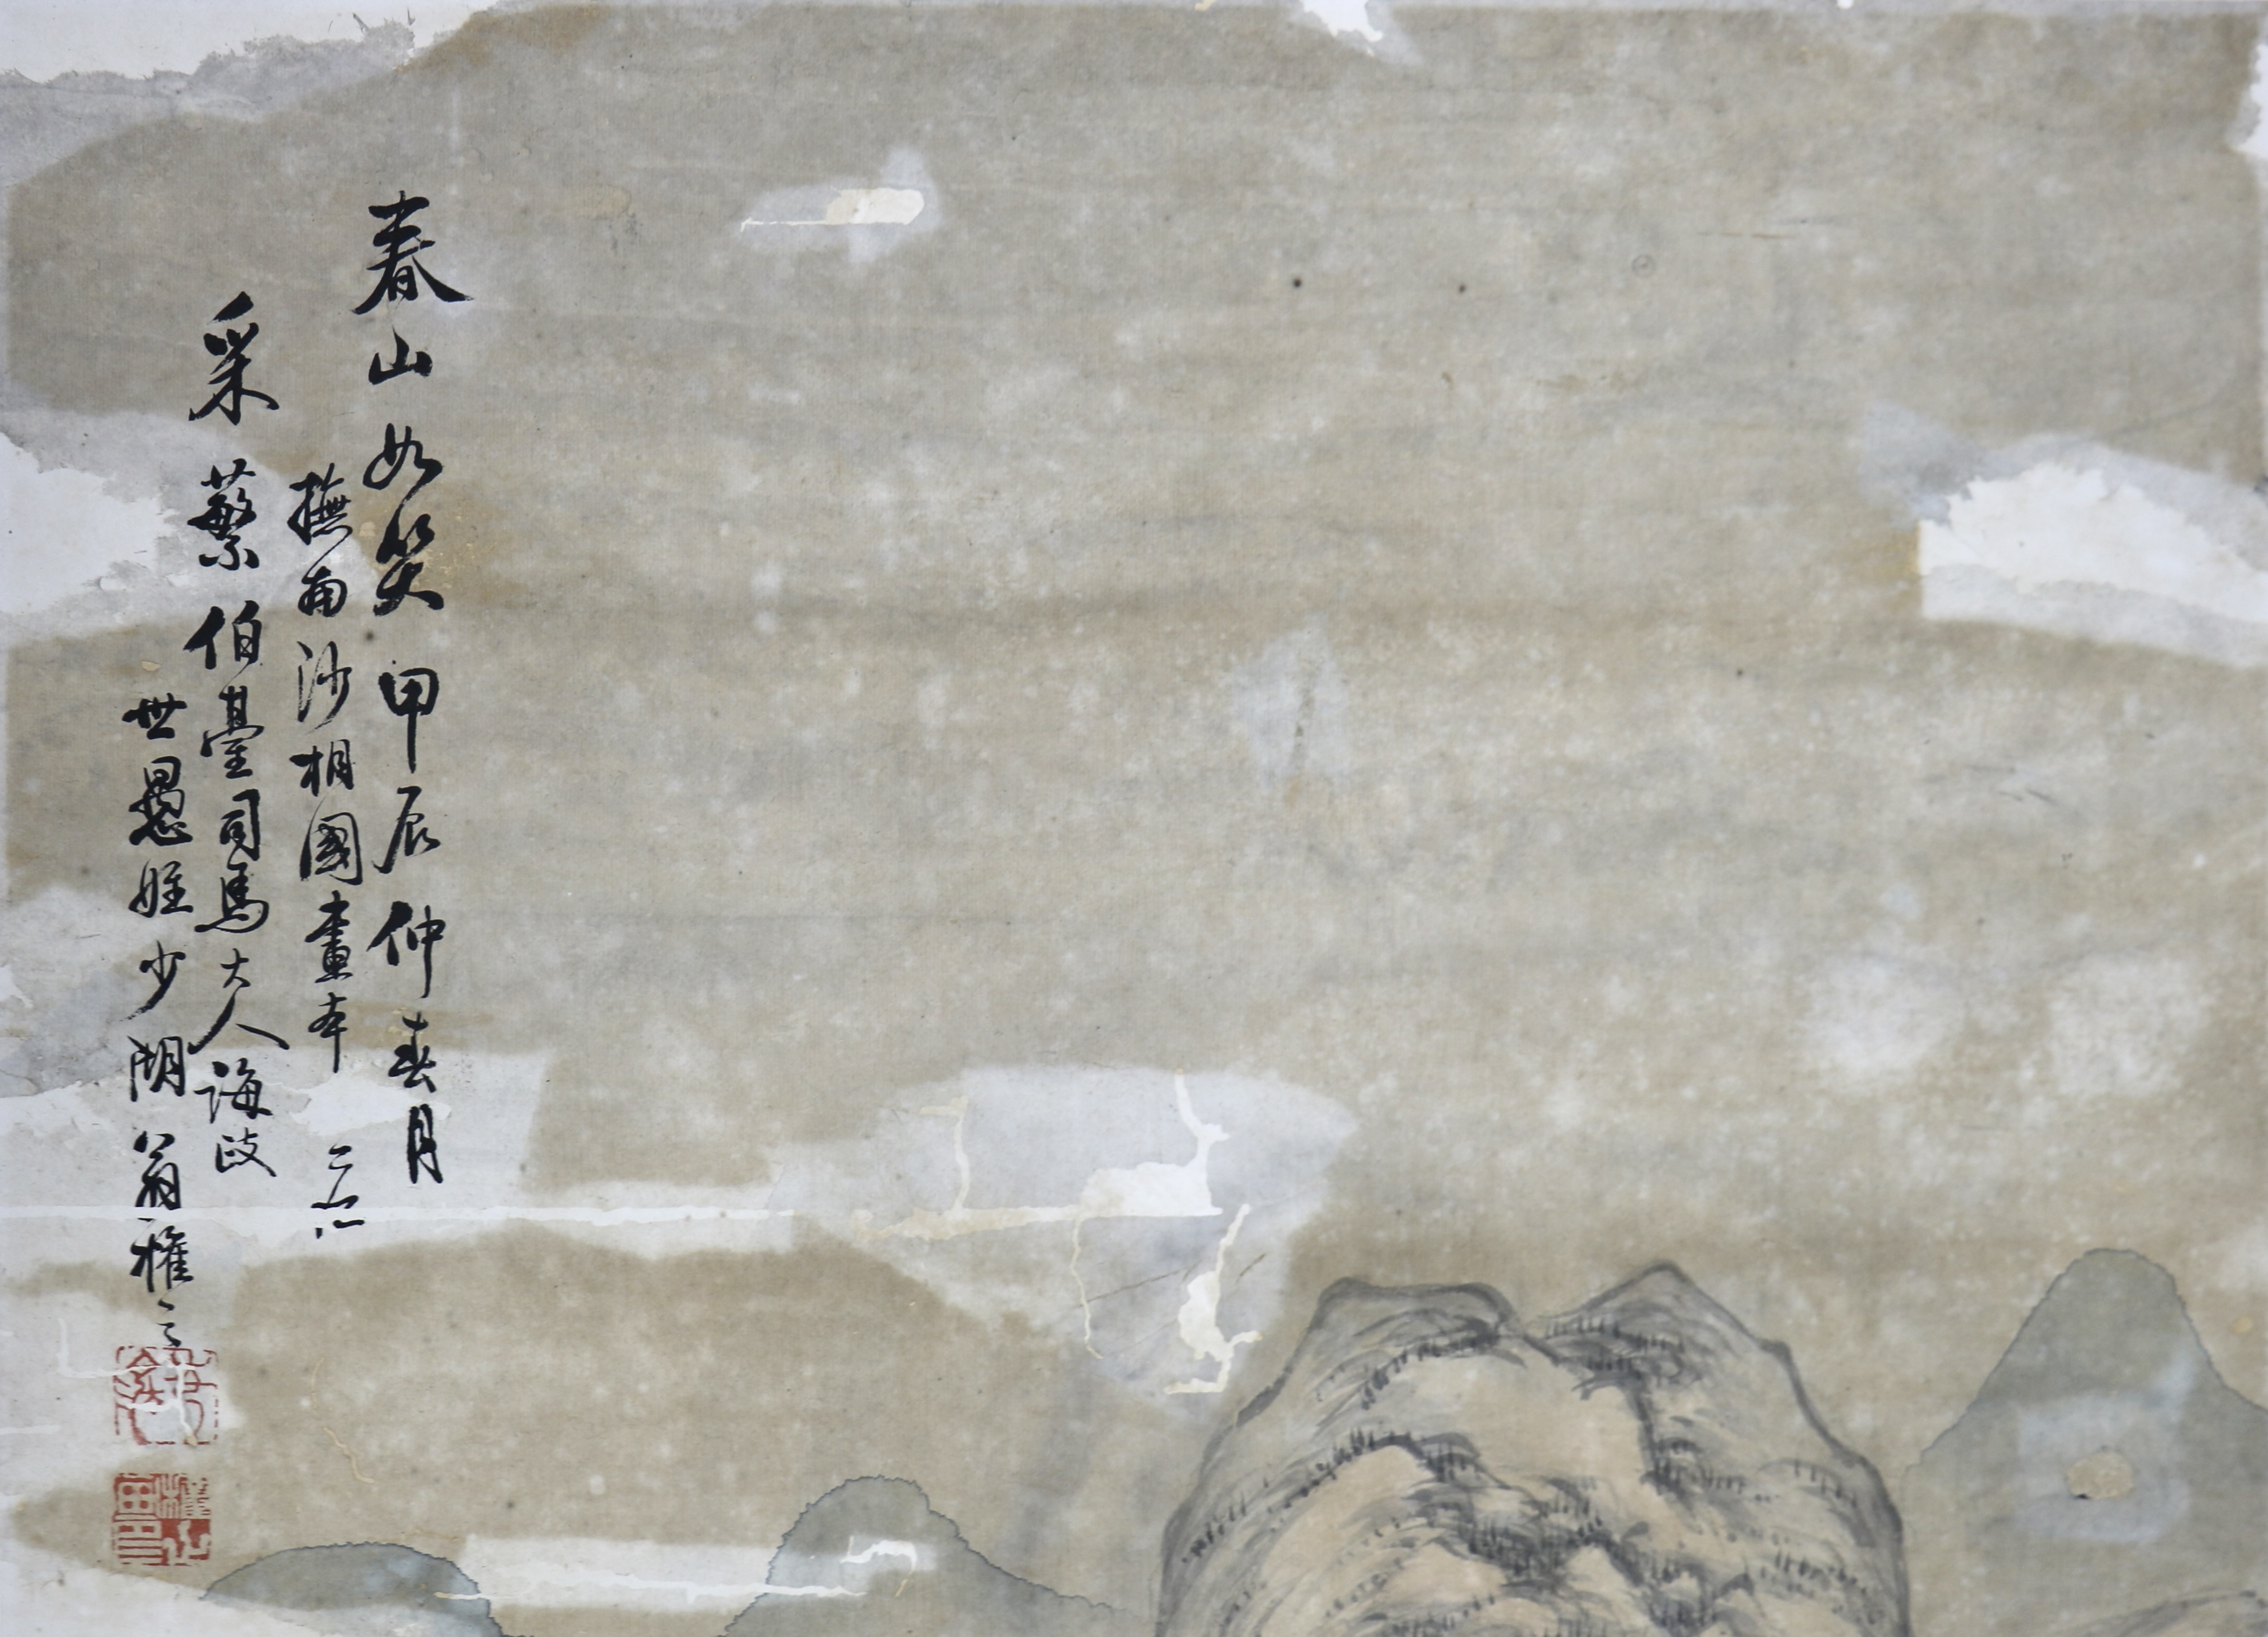 春山如笑 甲辰仲春月
撫南沙相國畫本
采蘩伯臺司馬大人誨政
世愚姪少湖翁雒